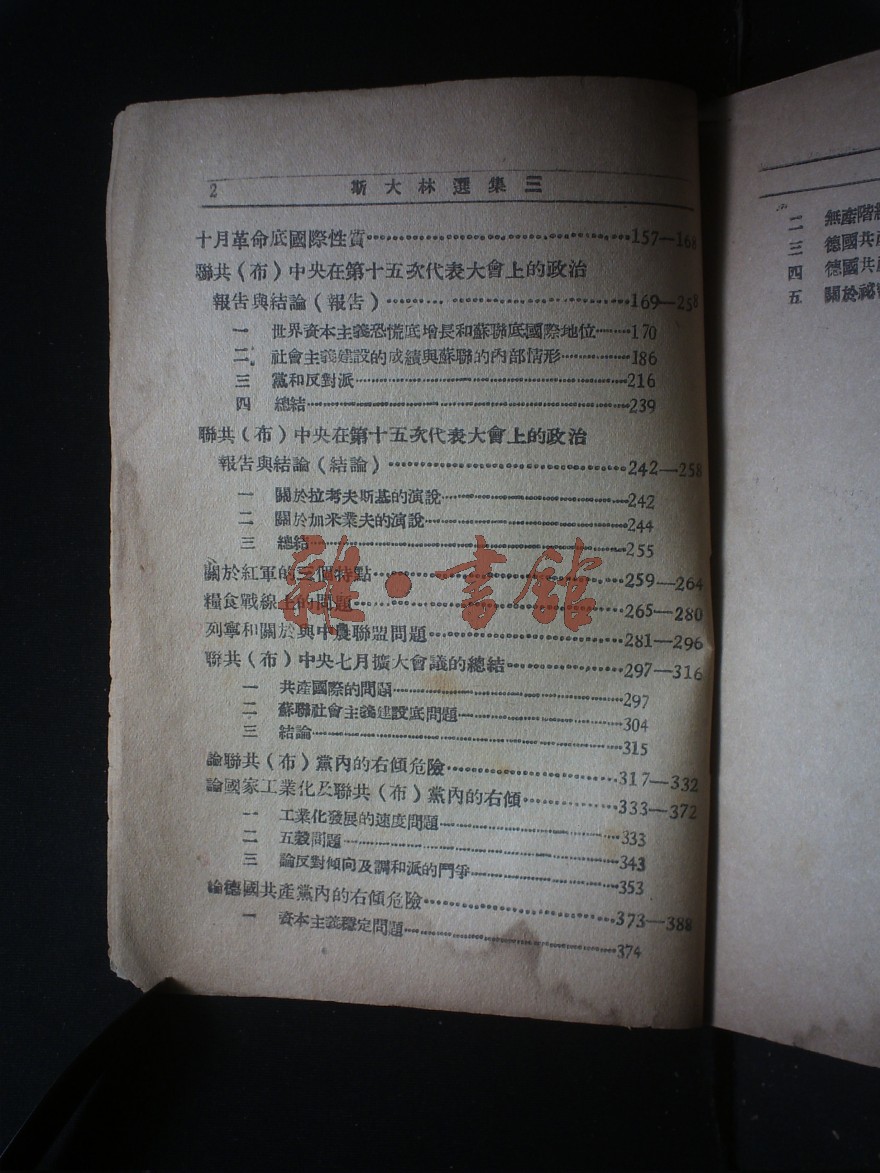 2 斯大林選集三
十月革命底國際性質……157—168
聯共(布)中央在第十五次代表大會上的政治
報告與結論(報告)……169—258
一 世界資本主義恐慌底增長和蘇聯底國際地位……170
二 社會主義建設的成績與蘇聯的內部情形……186
三 黨和反對派……216
四 總結……239
聯共(布)中央在第十五次代表大會上的政治
報告與結論(結論)……242—258
一 關於拉考夫斯基的演說……242
二 關於加米業夫的演說……244
三 總結……255
關於紅軍的三個特點……259—264
糧食戰線上的問題……265—280
列寧和關於與中農聯盟問題……281—296
聯共(布)中央七月擴大會議的總結……297—316
一 共產國際的問題……297
二 蘇聯社會主義建設底問題……304
三 結論……315
論聯共(布)黨內的右傾危險……317—332
論國家工業化及聯共(布)黨內的右傾……333—372
一 工業化發展的速度問題……333
二 五穀問題……343
三 論反對傾向及調和派的鬥爭……353
論德國共產黨內的右傾危險……373—388
一 資本主義穩定問題……374
雜·書館
二 無產階
三 德國共產
四 德國共產
五 關於祕